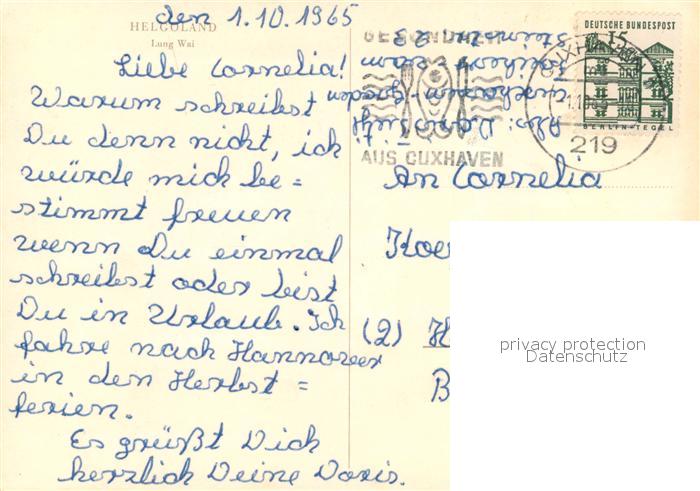 den 1.10.1965
HELGOLAND
Lung Wai
Liebe Cornelia!
Warum schreibst
Du denn nicht, ich
würde mich be=
stimmt freuen
wenn Du einmal
schreibst oder bist
Du in Urlaub. Ich
fahre nach Hannover
in den Herbst=
ferien.
Es grüßt Dich
herzlich Deine Doris.
Abs: Doris
GESUNDHEIT
AUS CUXHAVEN
219
DEUTSCHE BUNDESPOST
15
BERLIN-TEGEL
An Cornelia
Koe
(2) H
B
privacy protection
Datenschutz